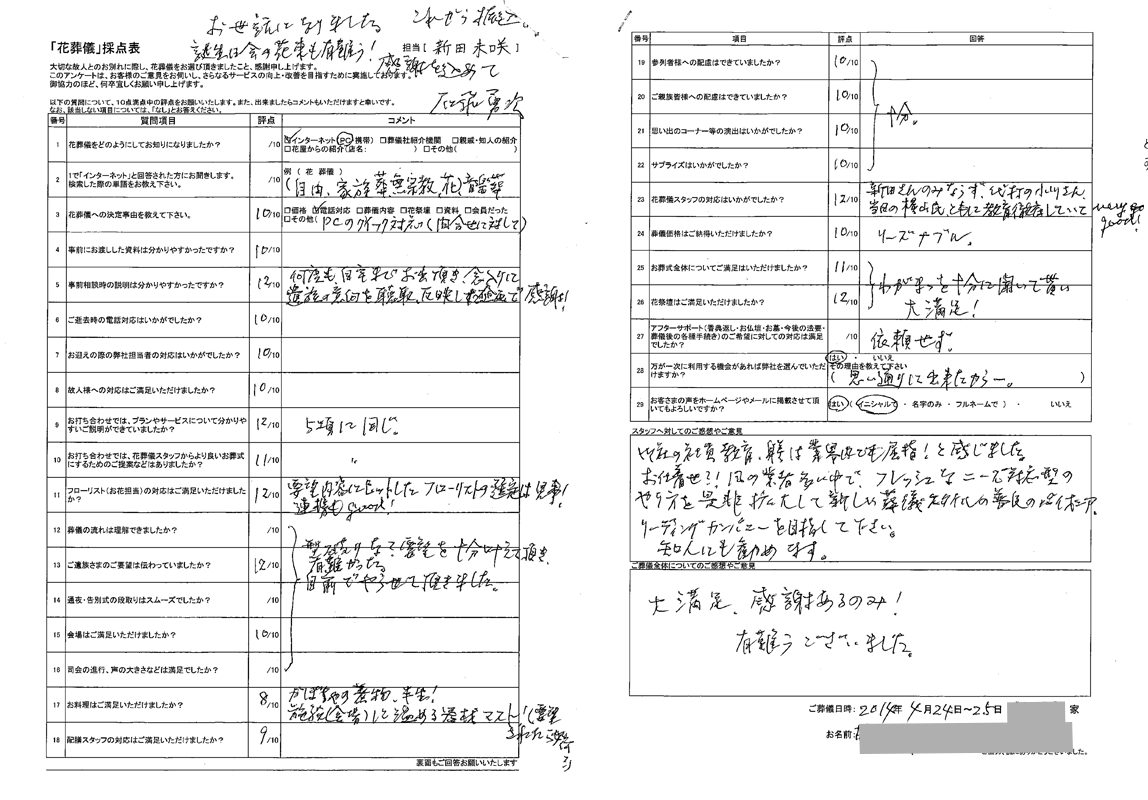 お世話になりました これから振込。
「花葬儀」採点表
誕生日会の花束も有難う！
担当［新田未咲］
感謝を込めて
大切な故人とのお別れに際し、花葬儀をお選び頂きましたこと、感謝申し上げます。
このアンケートは、お客様のご意見をお伺いし、さらなるサービスの向上・改善を目指すために実施しております。
御協力のほど、何卒宜しくお願い申し上げます。
以下の質問について、10点満点中の評点をお願いいたします。また、出来ましたらコメントもいただけますと幸いです。
なお、該当しない項目については、「なし」とお答えください。
番号 質問項目 評点 コメント
1 花葬儀をどのようにしてお知りになりましたか？ /10 ☑インターネット(PC 携帯) □葬儀社紹介機関 □親戚・知人の紹介
□花屋からの紹介(店名： ) □その他( )
2 1で「インターネット」と回答された方にお聞きします。
検索した際の単語をお教え下さい。 /10 例（花 葬儀）
（自由、家族葬、無宗教、花、音楽葬
3 花葬儀への決定事由を教えて下さい。 10/10 □価格 ☑電話対応 □葬儀内容 □花祭壇 □資料 □会員だった
□その他（PCのクイック対応（問合せに対して）
4 事前にお渡しした資料は分かりやすかったですか？ 10/10
5 事前相談時の説明は分かりやすかったですか？ 12/10 何度も、自宅までお出頂き、念入りに
遺族の意向を聴取、反映した 感謝！
6 ご逝去時の電話対応はいかがでしたか？ 10/10
7 お迎えの際の弊社担当者の対応はいかがでしたか？ 10/10
8 故人様への対応はご満足いただけましたか？ 10/10
9 お打ち合わせでは、プランやサービスについて分かりや
すいご説明ができていましたか？ 12/10 5項に同じ。
10 お打ち合わせでは、花葬儀スタッフからより良いお葬式
にするためのご提案などはありましたか？ 11/10 〃
11 フローリスト(お花担当)の対応はご満足いただけました
か？ 12/10 要望内容にヒットしたフローリストの選定は見事！
連携もgood！
12 葬儀の流れは理解できましたか？ /10
13 ご遺族さまのご要望は伝わっていましたか？ 12/10 型破りなご要望を十分叶えて頂き、
有難かった。
自前でやらせて頂きました。
14 通夜・告別式の段取りはスムーズでしたか？ /10
15 会場はご満足いただけましたか？ 10/10
16 司会の進行、声の大きさなどは満足でしたか？ /10
17 お料理はご満足いただけましたか？ 8/10 かぼちゃの煮物、半生！
施設(会場)にて温める器材マスト！（要望
18 配膳スタッフの対応はご満足いただけましたか？ 9/10
裏面もご回答お願いいたします
番号 項目 評点 回答
19 参列者様への配慮はできていましたか？ 10/10
20 ご親族皆様への配慮はできていましたか？ 10/10
十分。
21 思い出のコーナー等の演出はいかがでしたか？ 10/10
22 サプライズはいかがでしたか？ 10/10
23 花葬儀スタッフの対応はいかがでしたか？ 12/10 新田さんのみならず、代打の小山さん、
当日の横山氏、ともに教育徹底していて very good!
24 葬儀価格はご納得いただけましたか？ 10/10 リーズナブル。
25 お葬式全体についてご満足はいただけましたか？ 11/10
わがままを十分に聞いて貰い
26 花祭壇はご満足いただけましたか？ 12/10 大満足！
27 アフターサポート(香典返し・お仏壇・お墓・今後の法要・
葬儀後の各種手続き)のご希望に対しての対応は満足
でしたか？ /10 依頼せず。
28 万が一次に利用する機会があれば弊社を選んでいただ
けますか？ はい ・ いいえ
その理由を教えて下さい
（思い通りに出来たから。 ）
29 お客さまの声をホームページやメールに掲載させて頂
いてもよろしいですか？ はい（イニシャルで ・ 名字のみ ・ フルネームで ） ・ いいえ
スタッフへ対してのご感想やご意見
御社の社員教育、躾は業界内でも屈指！と感じました。
お仕着せ 業者多い中で、フレッシュなニーズ対応型の
やり方を是非拡大して新しい葬儀スタイルの パイオニア、
リーディングカンパニーを目指して下さい。
知人にも勧めます。
ご葬儀全体についてのご感想やご意見
大満足、感謝あるのみ！
有難うございました。
ご葬儀日時：2014年 4月24日～25日 家
お名前：